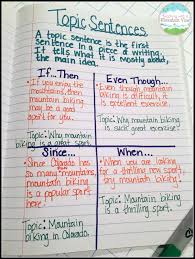 Topic Sentences
A topic sentence is the first
sentence in a piece of writing.
It tells what it is mostly about,
the main idea.
If...Then
If you enjoy
the mountains,
then mountain
biking may
be a great
sport for you.
Topic: Why mountain
biking is a great sport.
Even Though...
Even though
mountain biking is
difficult, it is
excellent exercise.
Topic: Why mountain biking
is such great exercise!
Since...
Since Colorado has
so many
mountains, mountain
biking is a
popular sport
here.
Topic: Mountain
biking in Colorado.
When...
When you are looking
for a thrilling new sport,
try mountain biking!
Topic: Mountain biking
is a thrilling sport.